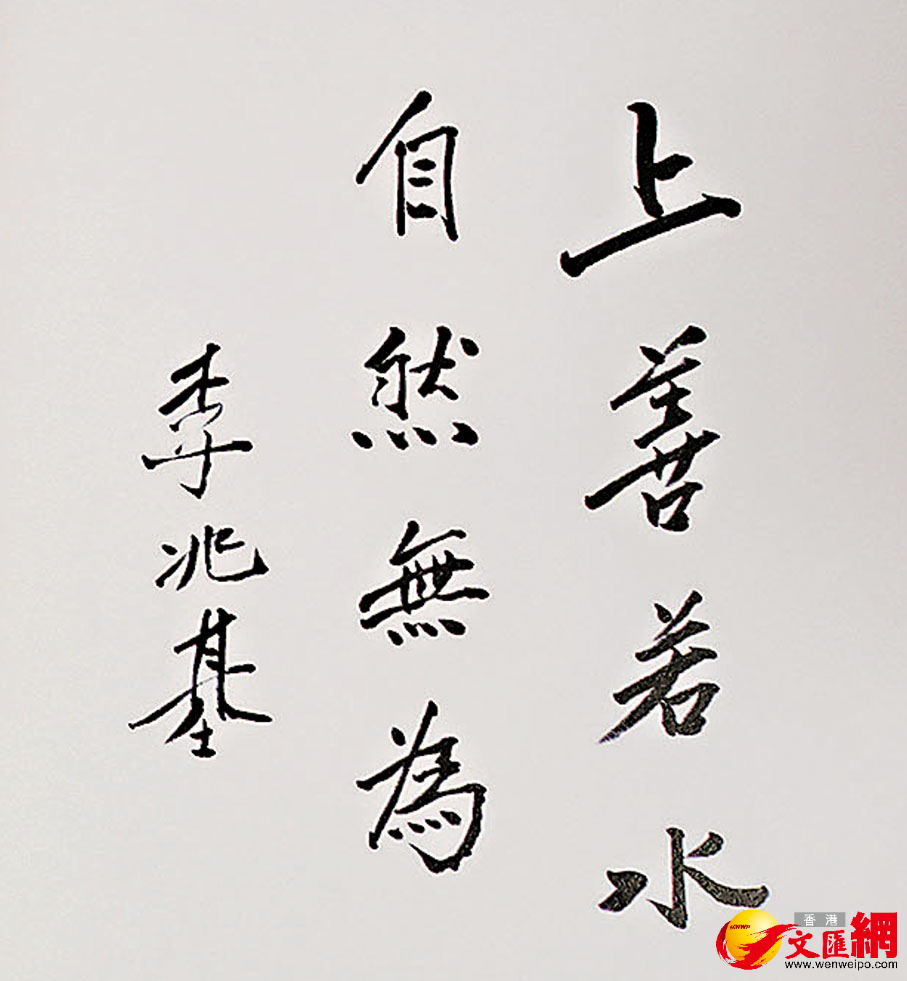 上善若水
自然無為
李兆基
香港
文匯網
WENWEIPO
www.wenweipo.com